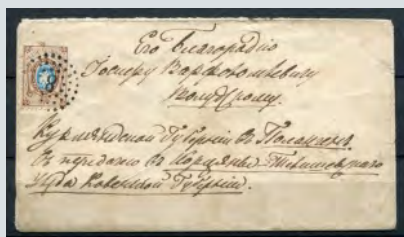 Его Благородію
Іосифу Варфоломеевичу
Курляндской Губерніи въ Полангенъ
въ передачею въ Тельшевскаго
Уѣзда Ковенской Губерніи.